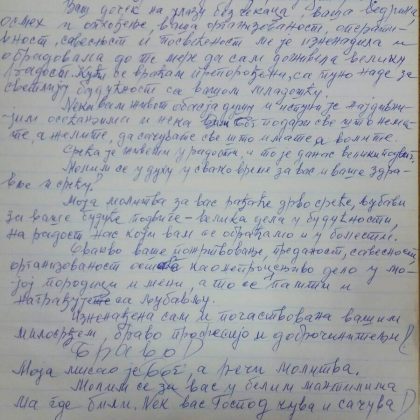 Ваш дочек на улази без чекања, ваша ведрина,
осмех и опхођење, ваша организованост, оператив-
ност, савесност и посвећеност ме је изненадила и
обрадовала до те мере да сам доживела велику
радост. Кући се враћам препорођена, са пуно наде за
светлију будућност са вашом младошћу.
Нека вам живот обасја душу и испуни је најдивни-
јим осећањима и нека вам Бог подари све што нема-
те, а желите, да сачувате све што имате а волите.
Срећа је живети у радости, а то је данас велики подвиг.
Молим се у духу у свако време за вас и ваше здра-
вље и срећу.
Моја молитва за вас рађаће зрно среће, љубави
за ваше будуће подвиге - велика дела у будућности,
на радост нас који вам се обраћамо и у болести.
Овакво ваше пожртвовање, преданост, савесност
организованост је као непроцењиво дело у мо-
јој породици и мени, а то се памти и
награђује са љубављу.
Изненађена сам и почаствована вашим
милосрђем, браво професијо и доброчинитељи!
Браво!
Моја мисао је Бог, а речи молитва.
Молим се за вас у белим мантилима
ма где били. Нек вас Господ чува и сачува!